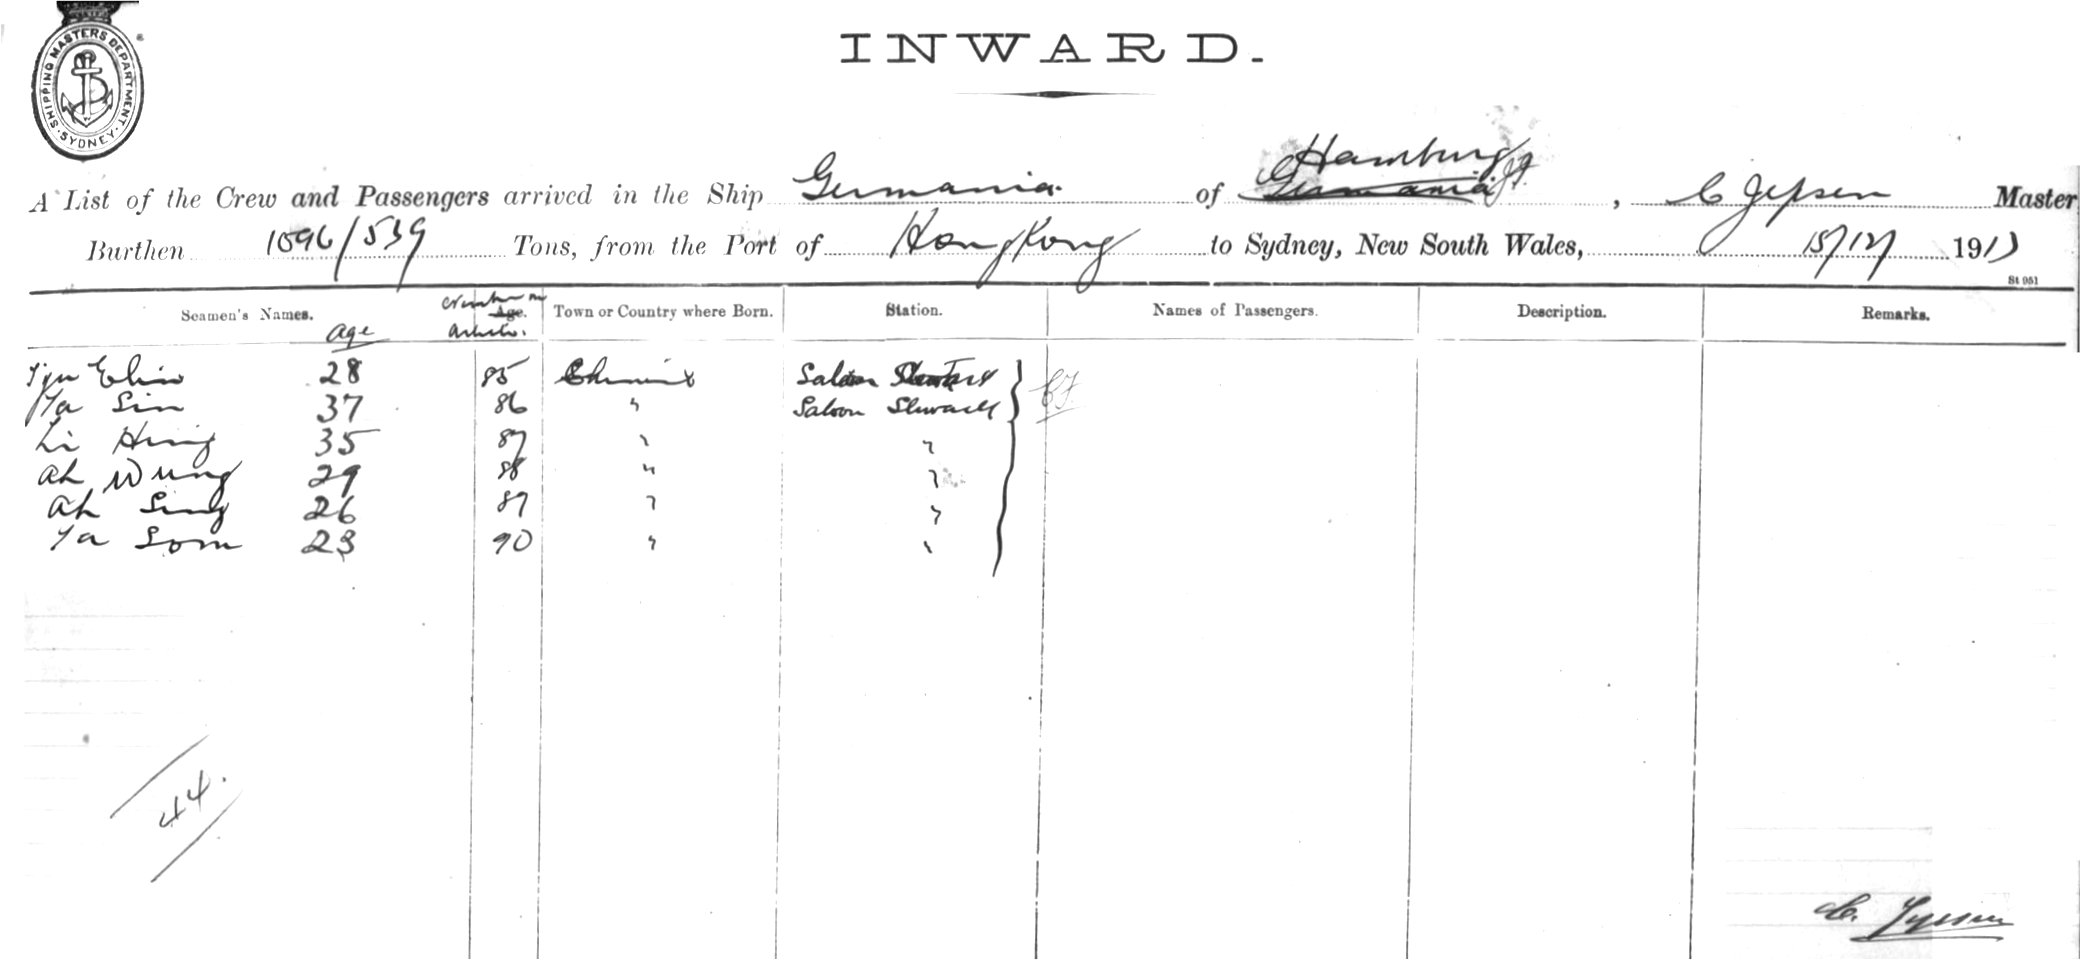 SHIPPING MASTERS DEPARTMENT. SYDNEY.
INWARD.
Hamburg
A List of the Crew and Passengers arrived in the Ship Germania of Germania, C Jepsen Master
Burthen 1096/539 Tons, from the Port of Hong Kong to Sydney, New South Wales, 15/12/ 1913
St 951
Seamen's Names. Age Number on Age. Articles. Town or Country where Born. Station. Names of Passengers. Description. Remarks.
28 85 Saloon
Ya Sin 37 86 " Saloon Steward
Li Hing 35 87 " "
Ah Wung 29 88 " "
Ah Sing 26 89 " "
Ya Som 23 90 " "
44.
C. Jepsen